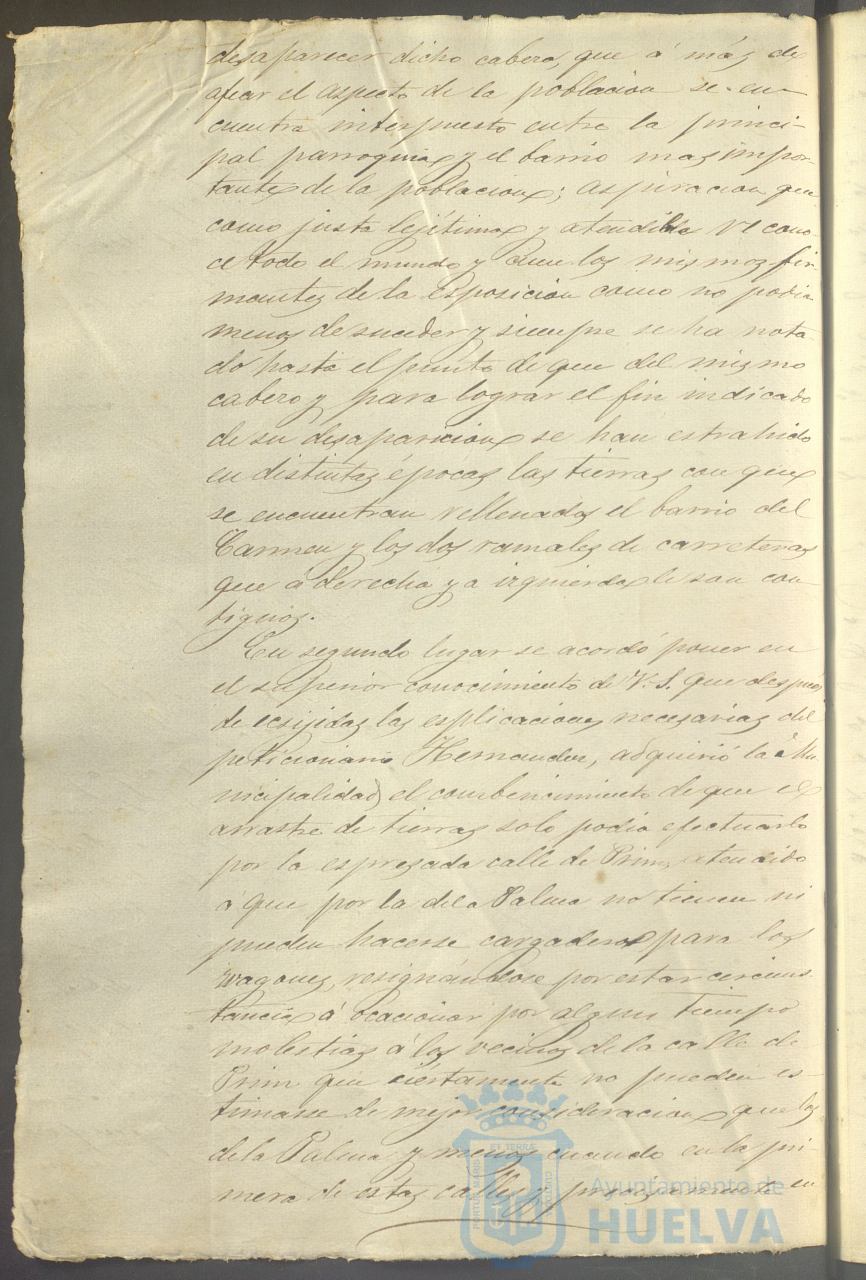 desaparecer dicho cabezo, que á mas de
afear el aspecto de la poblacion se en-
cuentra interpuesto entre la princi-
pal parroquia y el barrio mas impor-
tante de la poblacion; aspiracion que
como justa lejítima y atendible reconо-
ce todo el mundo y aun los mismos fir-
mantes de la esposicion como no podia
menos de suceder y siempre se ha nota
do hasta el punto de que del mismo
cabezo y para lograr el fin indicado
de su desaparicion se han estrahido
en distintas épocas las tierras con que
se encuentran rellenados el barrio del
Carmen y los dos ramales de carreteras
que á derecha y a izquierda le son con-
tiguos.
En segundo lugar se acordó poner en
el superior conocimiento de V. S. que despues
de ecsijidas las esplicaciones necesarias del
peticionario Hernandez, adquirió la Mu
nicipalidad el combencimiento de que el
arrastre de tierras solo podia efectuarlo
por la espresada calle de Prim, atendido
á que por la de la Palma no tienen ni
pueden hacerse cargaderos para los
wagones, resignándose por estar circuns
tancia á ocacionar por algun tiempo
molestias á los vecinos de la calle de
Prim que ciertamente no pueden es-
timarse de mejor consideracion que los
de la Palma y menos cuando en la pri-
mera de estas calles y precisamente en
ET TERRAE
Ayuntamiento de
HUELVA